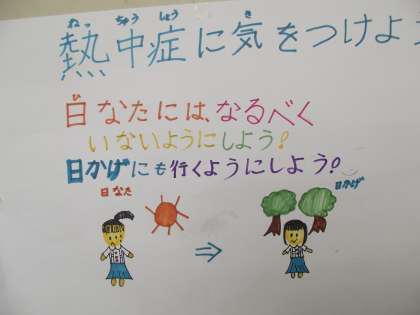 ねっ ちゅう しょう き
熱中症に気をつけよ
ひ
日なたには、なるべく
いないようにしよう!
日かげにも行くようにしよう!
日なた
日かげ